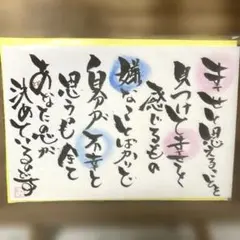 幸せと思えることを
見つけて幸せを
感じるもの
嫌なことばかりで
自分が不幸と
思うも全て
あなたの心が
決めているんです